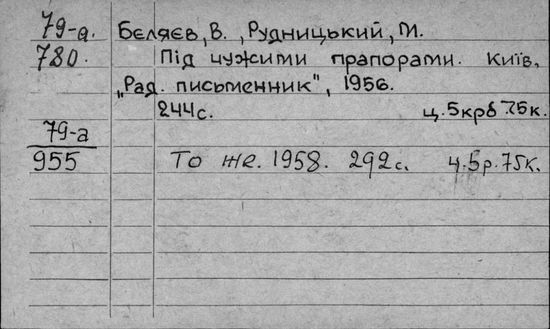 79-а. Беляєв, В., Рудницький, М.
780. Під чужими прапорами. Київ,
„Рад. письменник", 1956.
244с. ц. 5крб 75к.
79-а
955 То же. 1958. 292с. ц. 5р. 75к.